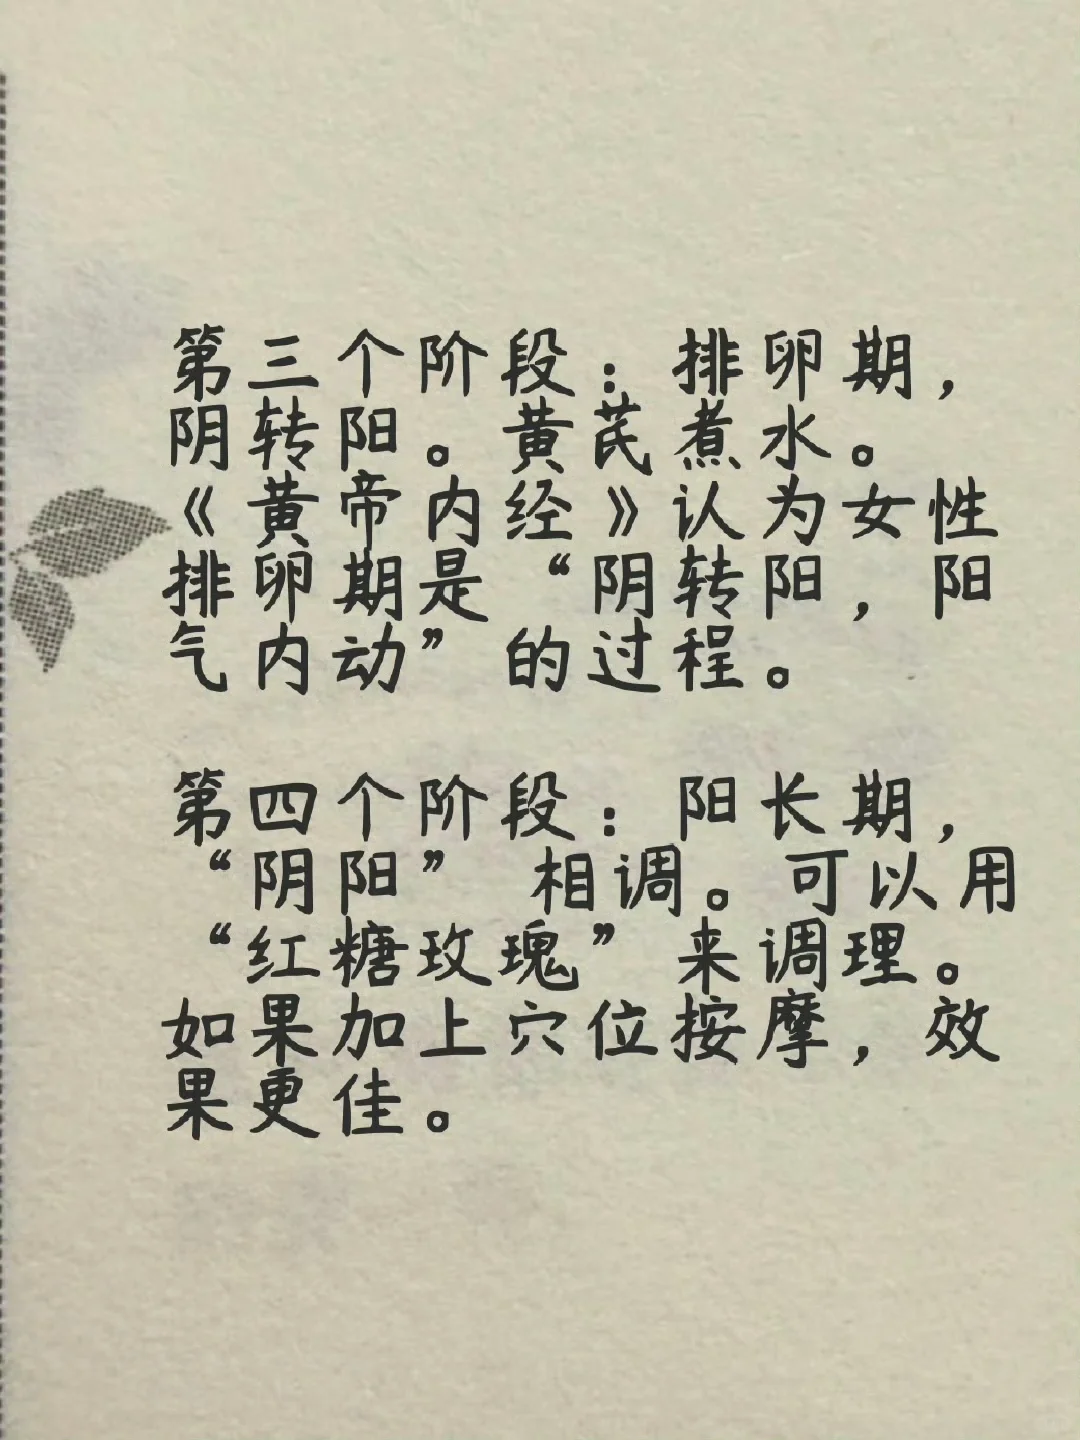 第三个阶段：排卵期，
阴转阳。黄芪煮水。
《黄帝内经》认为女性
排卵期是“阴转阳，阳
气内动”的过程。
第四个阶段：阳长期，
“阴阳” 相调。可以用
“红糖玫瑰”来调理。
如果加上穴位按摩，效
果更佳。